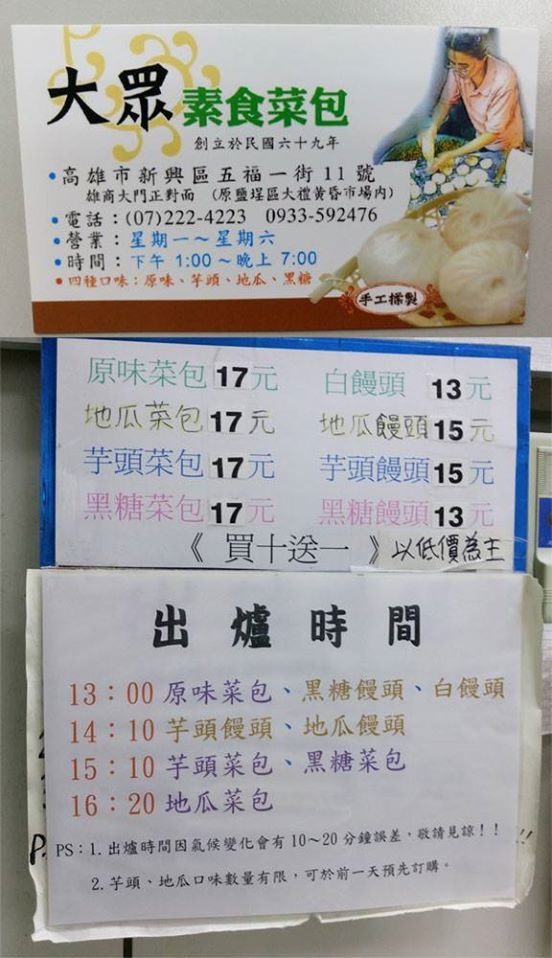 大眾素食菜包
創立於民國六十九年
•高雄市新興區五福一街11號
雄商大門正對面 (原鹽埕區大禮黃昏市場內)
•電話：(07)222-4223 0933-592476
•營業：星期一～星期六
•時間：下午 1:00～晚上 7:00
•四種口味：原味、芋頭、地瓜、黑糖
手工揉製
原味菜包 17元 白饅頭 13元
地瓜菜包 17元 地瓜饅頭 15元
芋頭菜包 17元 芋頭饅頭 15元
黑糖菜包 17元 黑糖饅頭 13元
《 買十送一 》以低價為主
出爐時間
13：00 原味菜包、黑糖饅頭、白饅頭
14：10 芋頭饅頭、地瓜饅頭
15：10 芋頭菜包、黑糖菜包
16：20 地瓜菜包
PS：1.出爐時間因氣候變化會有10～20分鐘誤差，敬請見諒！！
2.芋頭、地瓜口味數量有限，可於前一天預先訂購。